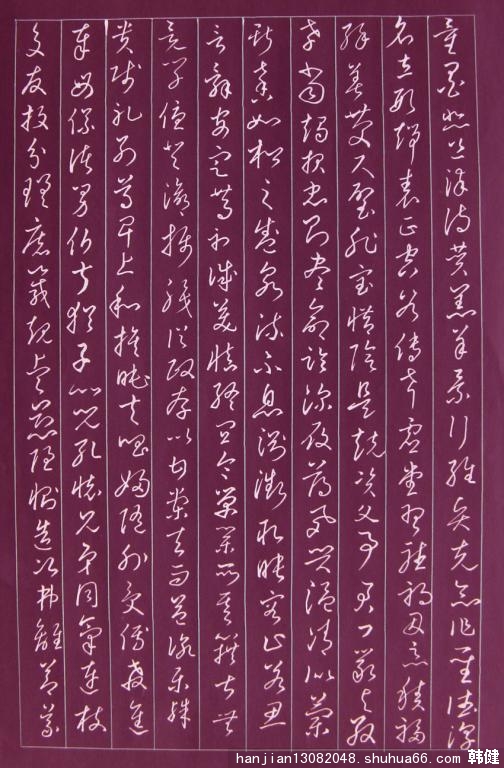 量墨悲絲染詩讚羔羊景行維賢克念作聖德建
名立形端表正空谷傳聲虛堂習聽禍因惡積福
緣善慶尺璧非寶寸陰是競資父事君曰嚴與敬
孝當竭力忠則盡命臨深履薄夙興溫凊似蘭
斯馨如松之盛川流不息淵澄取映容止若思
言辭安定篤初誠美慎終宜令榮業所基籍甚無
竟學優登仕攝職從政存以甘棠去而益詠樂殊
貴賤禮別尊卑上和下睦夫唱婦隨外受傅訓入
奉母儀諸姑伯叔猶子比兒孔懷兄弟同氣連枝
交友投分切磨箴規仁慈隱惻造次弗離節義
hanjian13082048.shuhua66.com 韩健